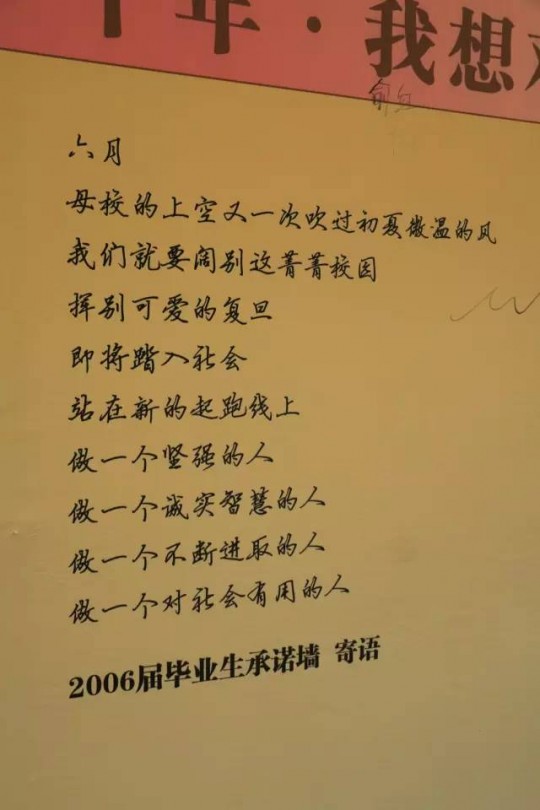 十年·我想对
俞
六月
母校的上空又一次吹过初夏微温的风
我们就要阔别这菁菁校园
挥别可爱的复旦
即将踏入社会
站在新的起跑线上
做一个坚强的人
做一个诚实智慧的人
做一个不断进取的人
做一个对社会有用的人
2006届毕业生承诺墙 寄语